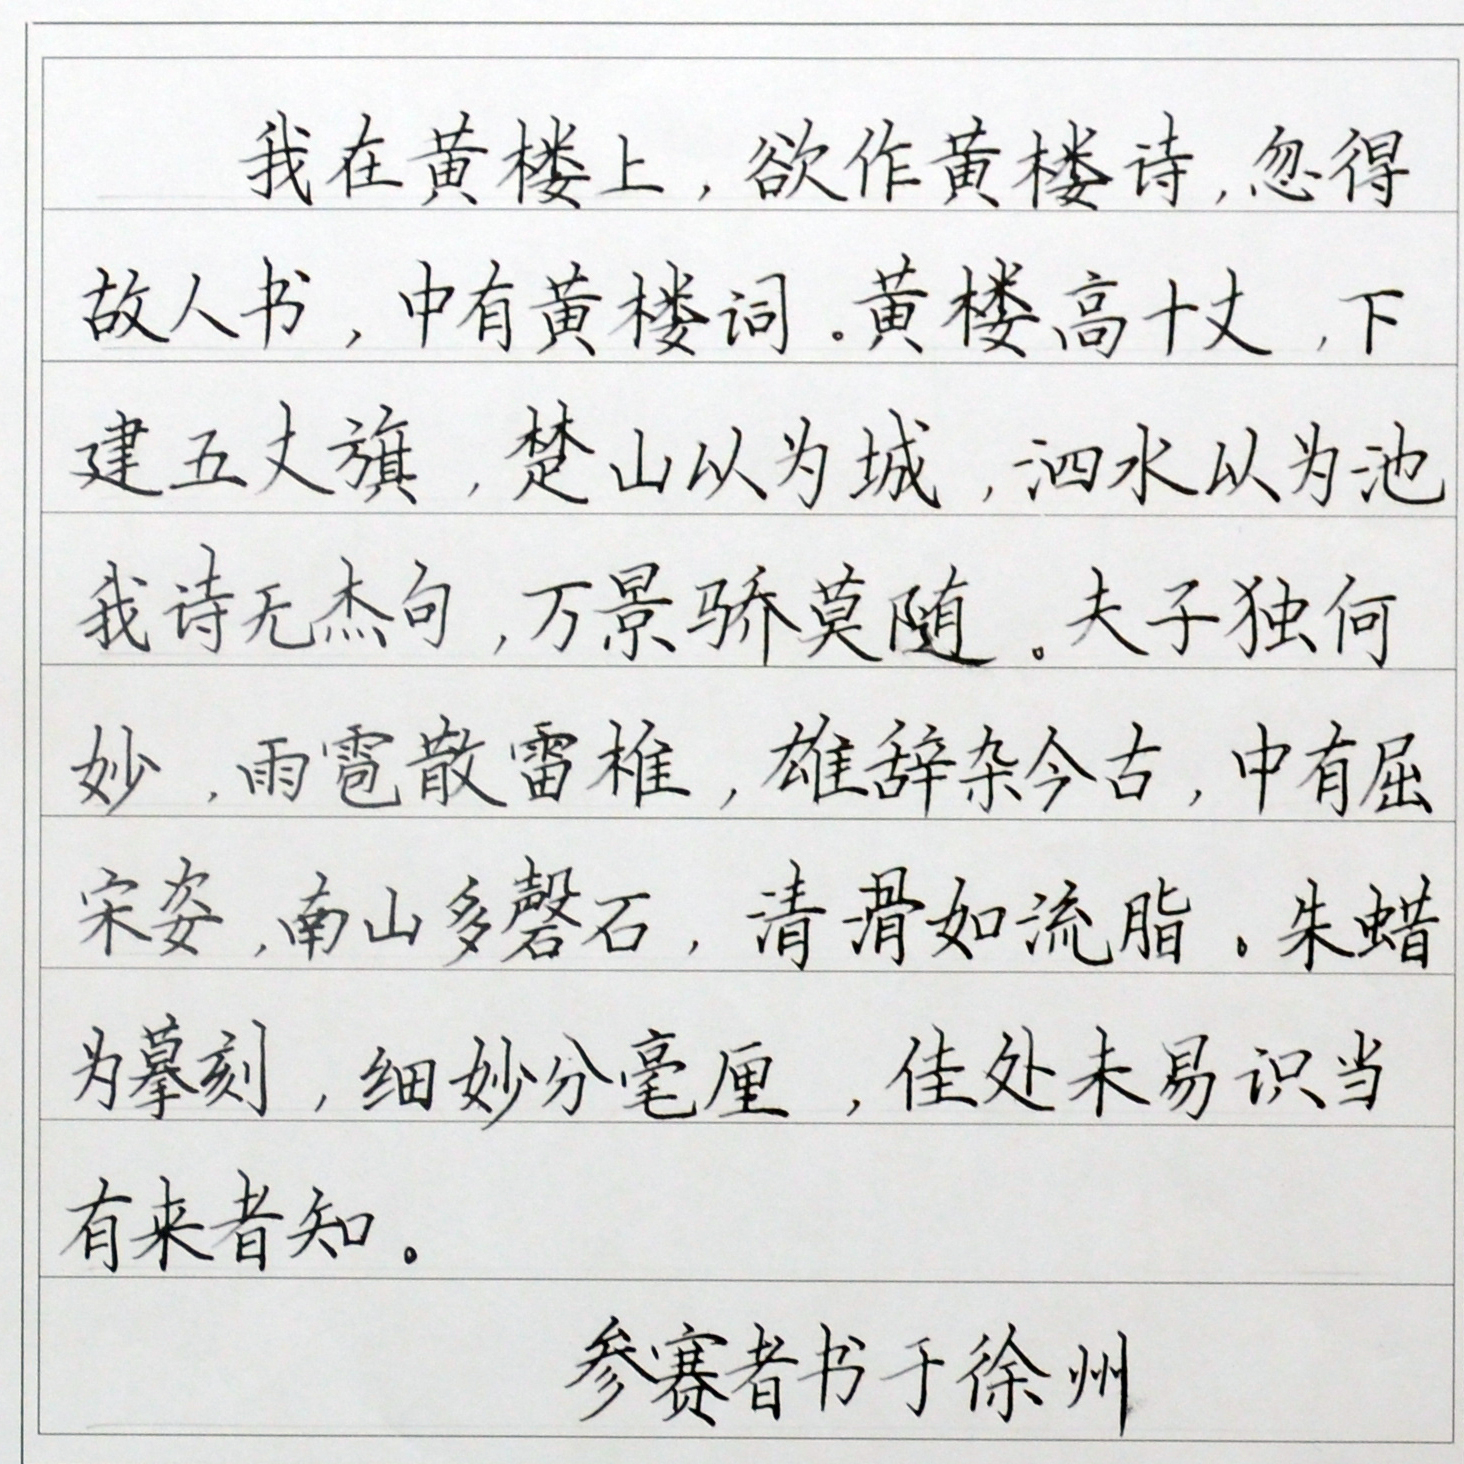 我在黄楼上，欲作黄楼诗，忽得
故人书，中有黄楼词。黄楼高十丈，下
建五丈旗，楚山以为城，泗水以为池
我诗无杰句，万景骄莫随。夫子独何
妙，雨雹散雷椎，雄辞杂今古，中有屈
宋姿，南山多磬石，清滑如流脂。朱蜡
为摹刻，细妙分毫厘，佳处未易识当
有来者知。
参赛者书于徐州